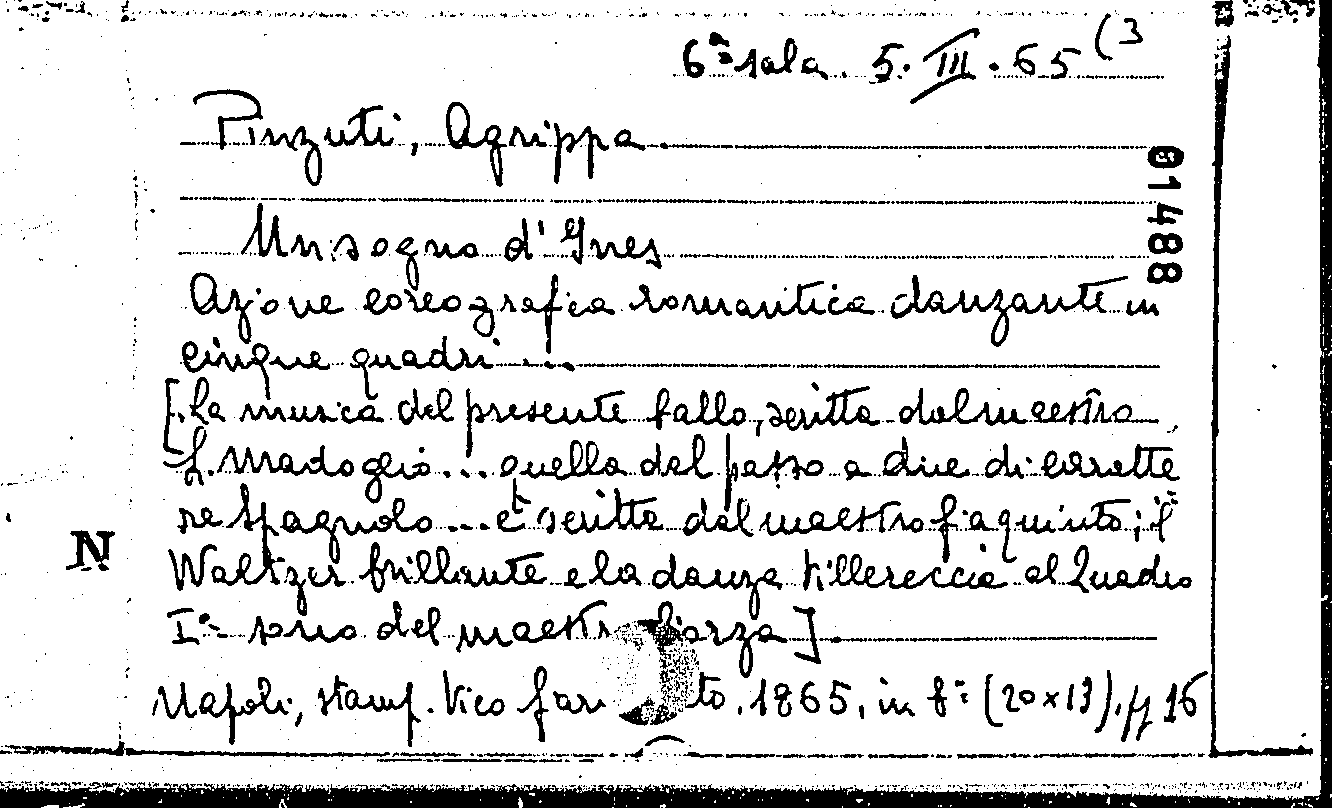 6ª sala. 5. III. 65 (3
Pinzuti, Agrippa.
01488
Un sogno d' Ines
Azione coreografica romantica danzante in
cinque quadri ...
[. La musica del presente ballo, scritta dal maestro
L. Madoglio ... quella del passo a due di carattere
re Spagnolo ... è scritta dal maestro Giaquinto; il
N
Waltzer brillante e la danza villereccia al Quadro
Iº sono del maestro Giarza].
Napoli, stamp. Vico 1865, in 8º (20 x 13), pp 16